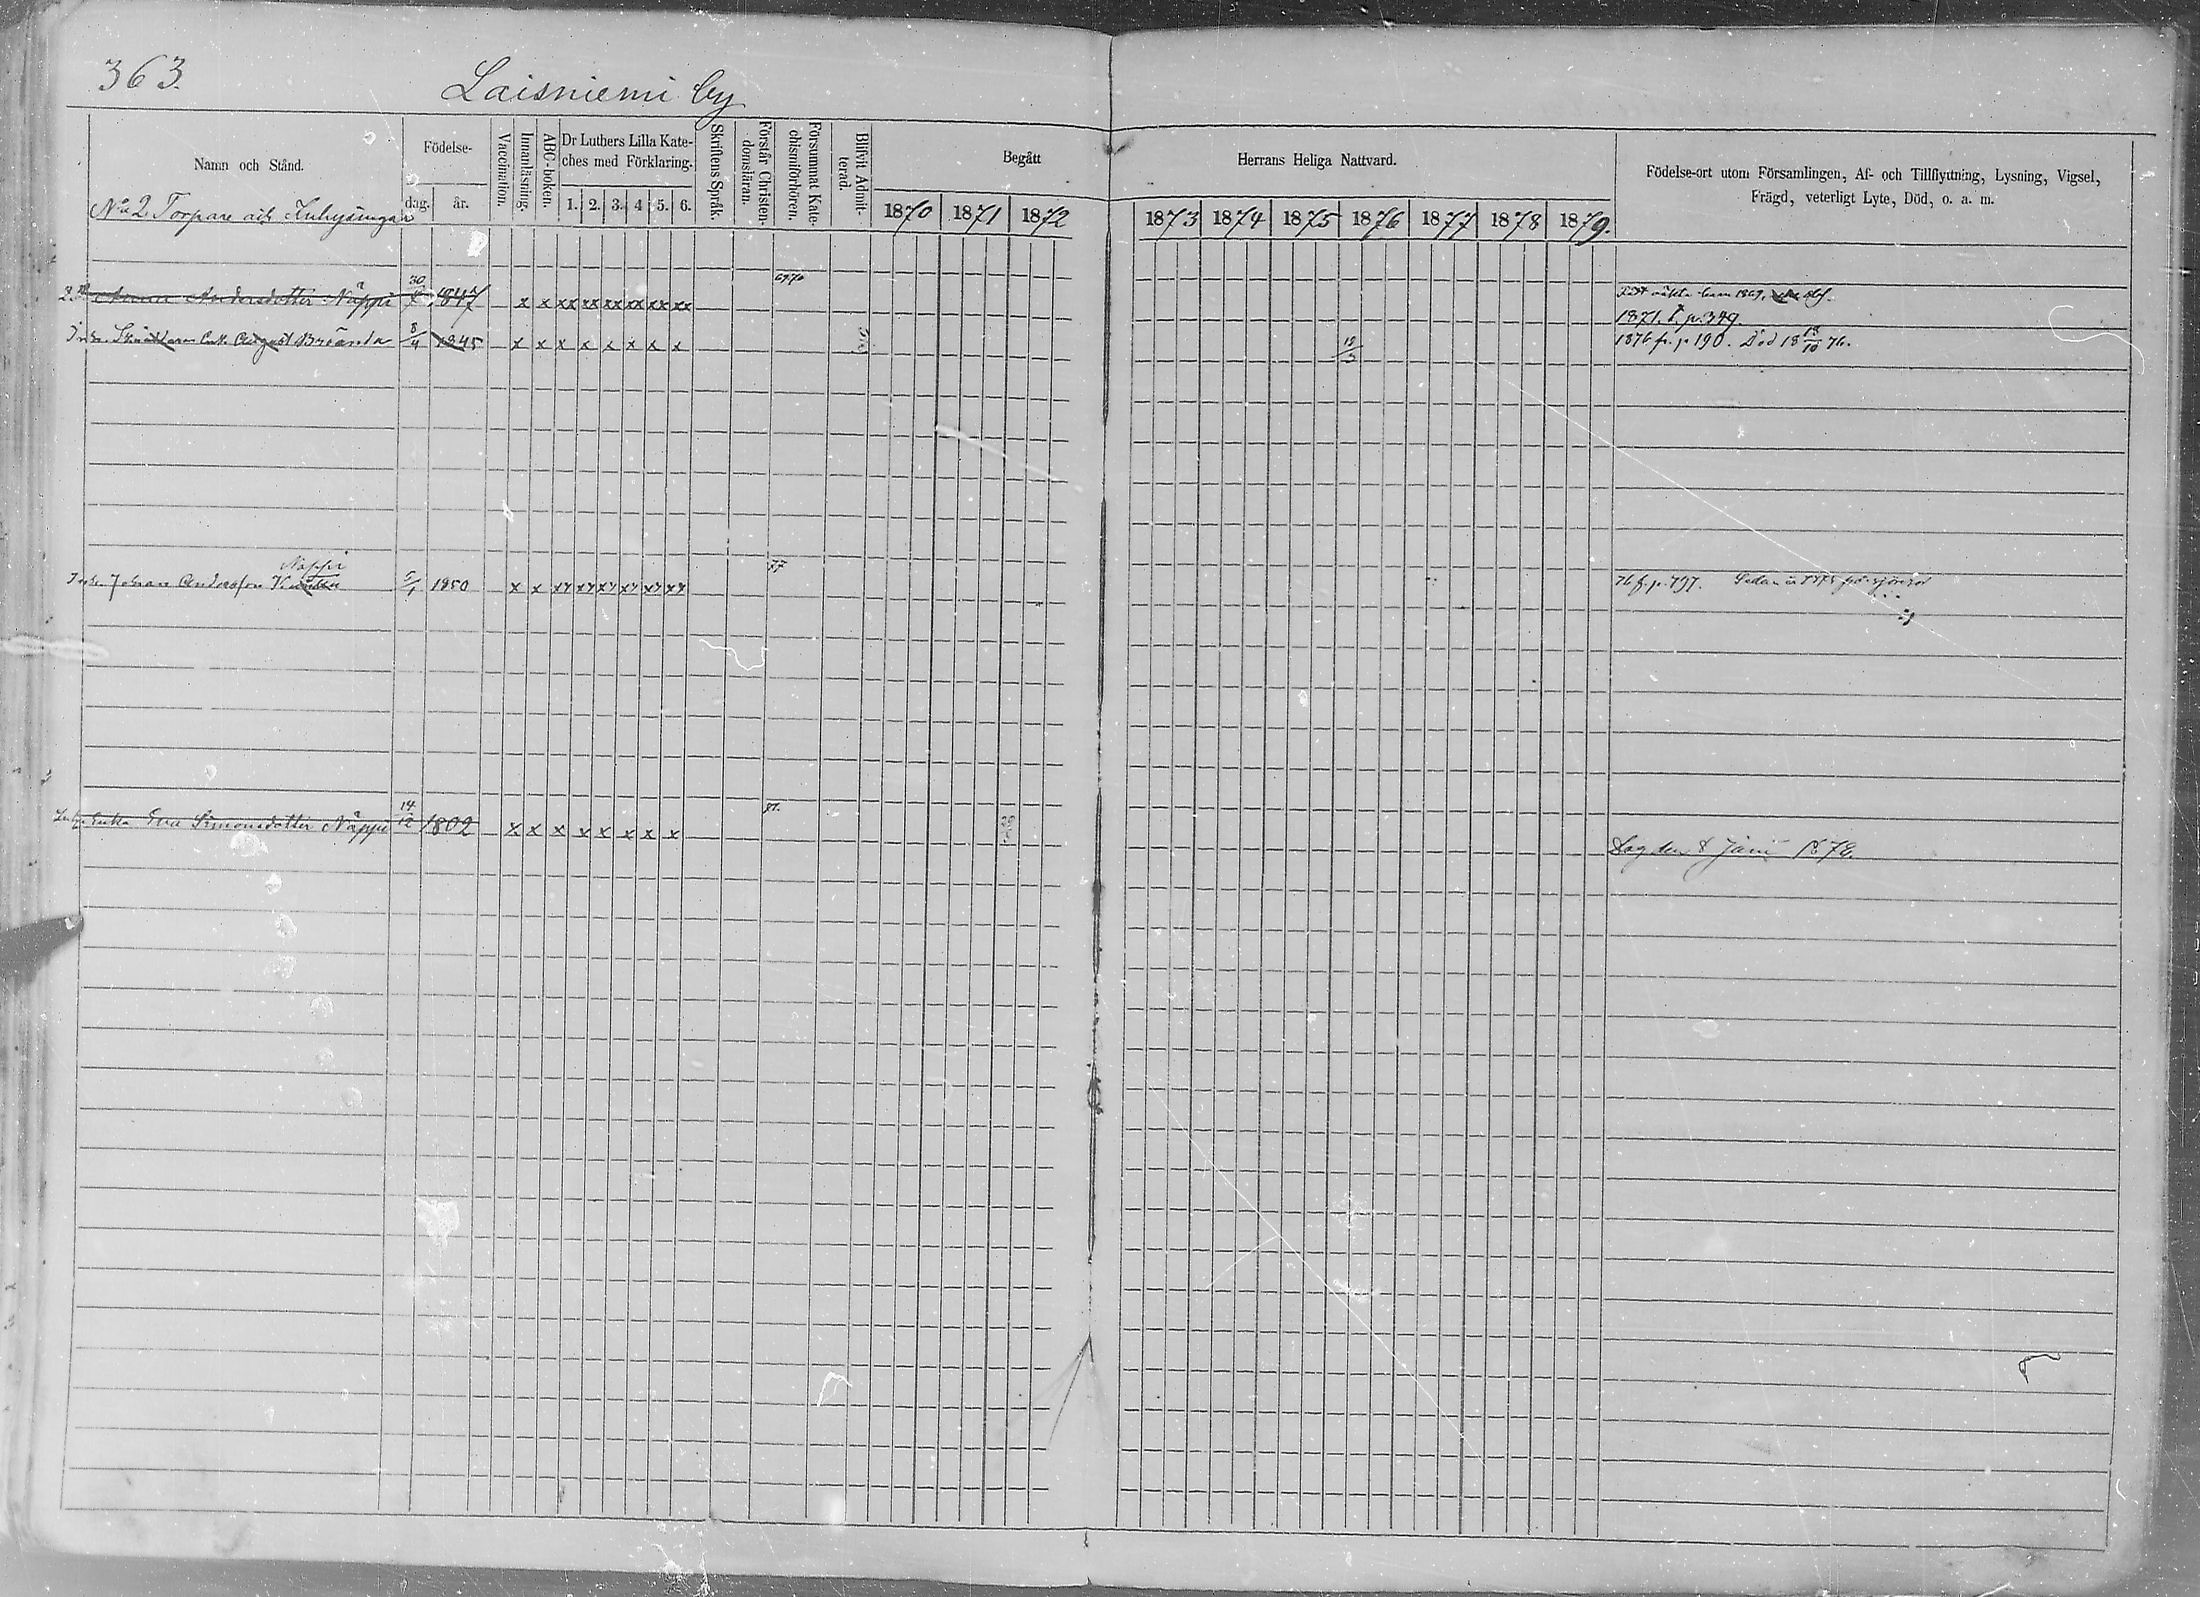 363.
Laisniemi by
Namn och Stånd.
Födelse-
dag.
år.
Vaccination.
Innanläsning.
ABC-boken.
Dr Luthers Lilla Kate-
ches med Förklaring.
1. 2. 3. 4 5. 6.
Skriftens Språk.
Förstår Christen-
domsläran.
Försummat Kate-
chismiförhören.
Blifvit Admit-
terad.
Begått
Herrans Heliga Nattvard.
1870 1871 1872
1873 1874 1875 1876 1877 1878 1879.
Födelse-ort utom Församlingen, Af- och Tillflyttning, Lysning, Vigsel,
Frägd, veterligt Lyte, Död, o. a. m.
No 2 Torpare och Inhysingar
Anna Andersdotter Näppi 30 1847 x x xx xx xx xx xx xx 6970 1869
1871. p. 349.
August 8/4 1845 x x x x x x x x 1876 fr. p 190. Död 18 18/10 76.
Näppi
Johan Andersson 5/1 1850 x x 77
Enka Eva Simonsdotter Näppi 14/12 1802 x x x x x x x x
Dog den 8 Juni 1872.